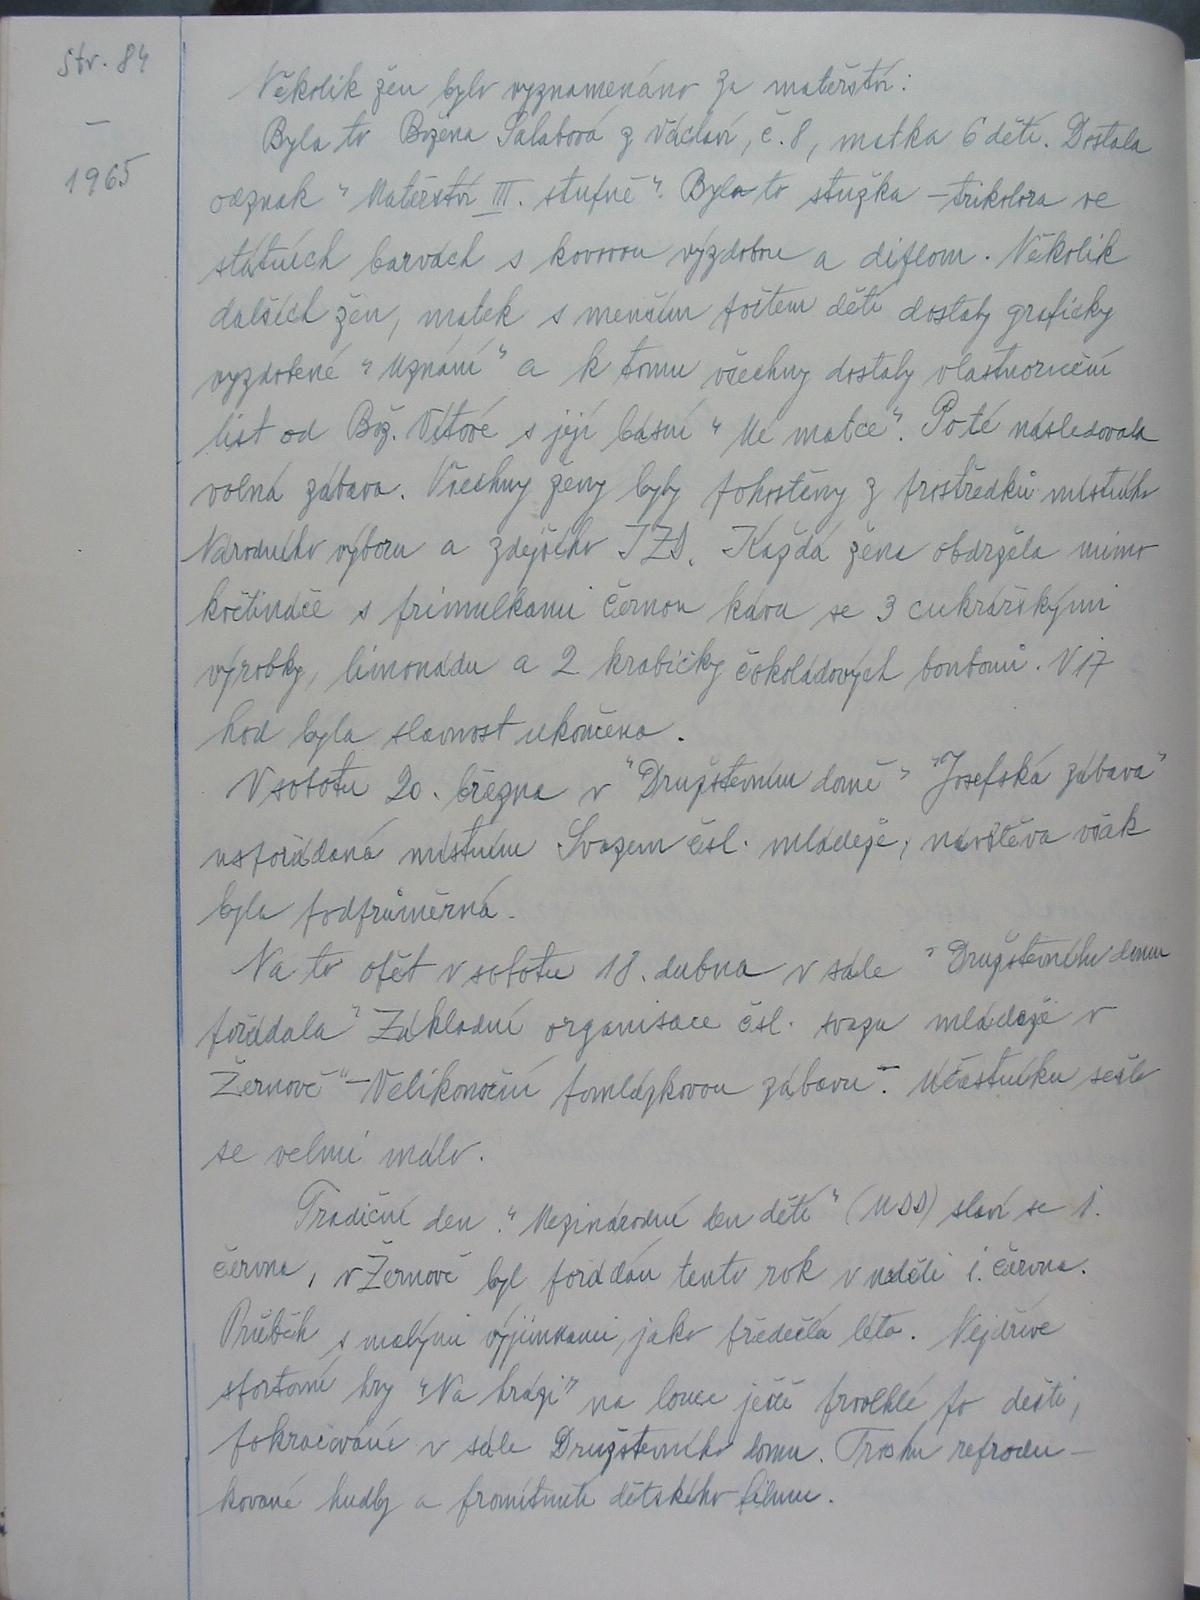 Str. 84
—
1965
Několik žen bylo vyznamenáno za mateřství:
Byla to Božena Salabová z Václaví, č. 8, matka 6 dětí. Dostala
odznak "Mateřství III. stupně". Byla to stužka – trikolora ve
státních barvách s kovovou výzdobou a diplom. Několik
dalších žen, matek s menším počtem dětí dostaly graficky
vyzdobené "Uznání" a k tomu všechny dostaly vlastnoruční
list od Bož. Vítové s její básní "Mé matce". Poté následovala
volná zábava. Všechny ženy byly pohoštěny z prostředků místního
Národního výboru a zdejšího JZD. Každá žena obdržela mimo
květináče s primulkami černou kávu se 3 cukrářskými
výrobky, limonádu a 2 krabičky čokoládových bonbonů. V 17
hod byla slavnost ukončena.
V sobotu 20. března v "Družstevním domě" "Josefská zábava"
uspořádaná místním Svazem čsl. mládeže, návštěva však
byla podprůměrná.
Na to opět v sobotu 18. dubna v sále "Družstevního domu
pořádala "Základní organisace čsl. svazu mládeže v
Žernově" – Velikonoční pomlázkovou zábavu". Účastníku sešlo
se velmi málo.
Tradiční den "Mezinárodní den dětí" (MDD) slaví se 1.
června, v Žernově byl pořádán tento rok v neděli 1. června.
Průběh s malými výjimkami jako předešlá léta. Nejdříve
sportovní hry "Na hrázi" na louce ještě provlhlé po dešti,
pokračování v sále Družstevního domu. Trochu reprodu–
kované hudby a promítnutí dětského filmu.